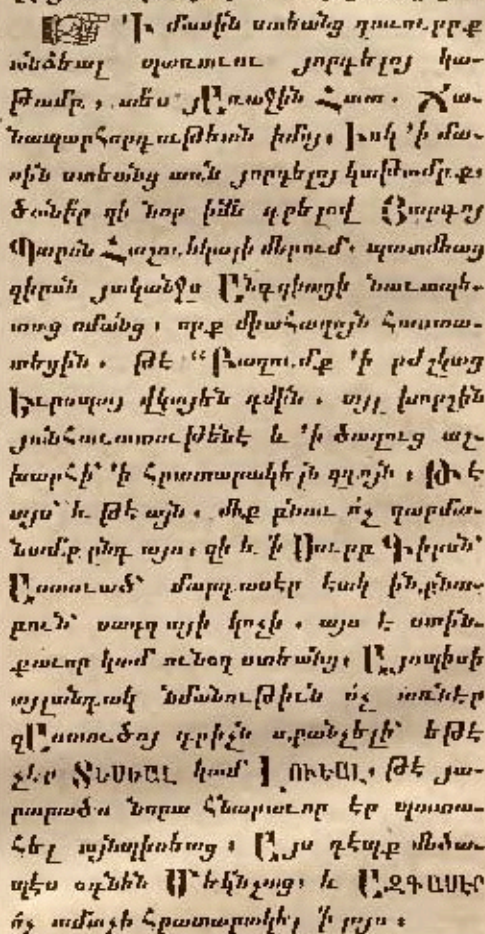 ՚Ի մասին ստեանց զաւուրբք
անձեալ պատուու յորդելոյ կա-
թամբ, տես յԱռաջին Հատ. Ճա-
նապարհորդութեան իմոյ։ Իսկ ՚ի մա-
սին ստեանց առն յորդելոյ կաթամբք,
ծանիր զի նոր իմն գրելով Յարգոյ
Պարոն յականջս Անգղիացի նաւապե-
տաց ոմանց, որք միահաղոյն հաստա-
տեցին. թէ “Բազումք ՚ի բժշկաց
Եւրոպոյ վկայեն զմին. այլ խորշին
յանհաւատութենէ և ՚ի ծաղուց աշ-
խարհի՝ ՚ի հրատարակելն զգոյն. Թէ
այս՝ և թէ այն. մեք բնաւ ոչ զարմա-
նամք ընդ այս։ զի և ՚ի Սուրբ Գիրսն՝
Աստուած՝ մարդասէր եակ ինքնա-
բուն՝ սադդայի կոչի. այս է ստին-
քաւոր կամ ունօղ ստեանց։ Այսպիսի
այլանդակ նմանութիւն ոչ առնէր
զԱստուծոյ գրիչն սքանչելի՝ եթէ
չէր ՏԵՍԵԱԼ կամ ԼՈՒԵԱԼ, թէ յա-
րարածս նորա հնարաւոր էր պատա-
հել այնպիսեաց։ Այս դէպք մեծա-
պէս օգնեն Մեկնչաց։ և ԱԶԳԱՍԷՐ
ոչ ամաչի հրատարակել ՚ի լոյս։